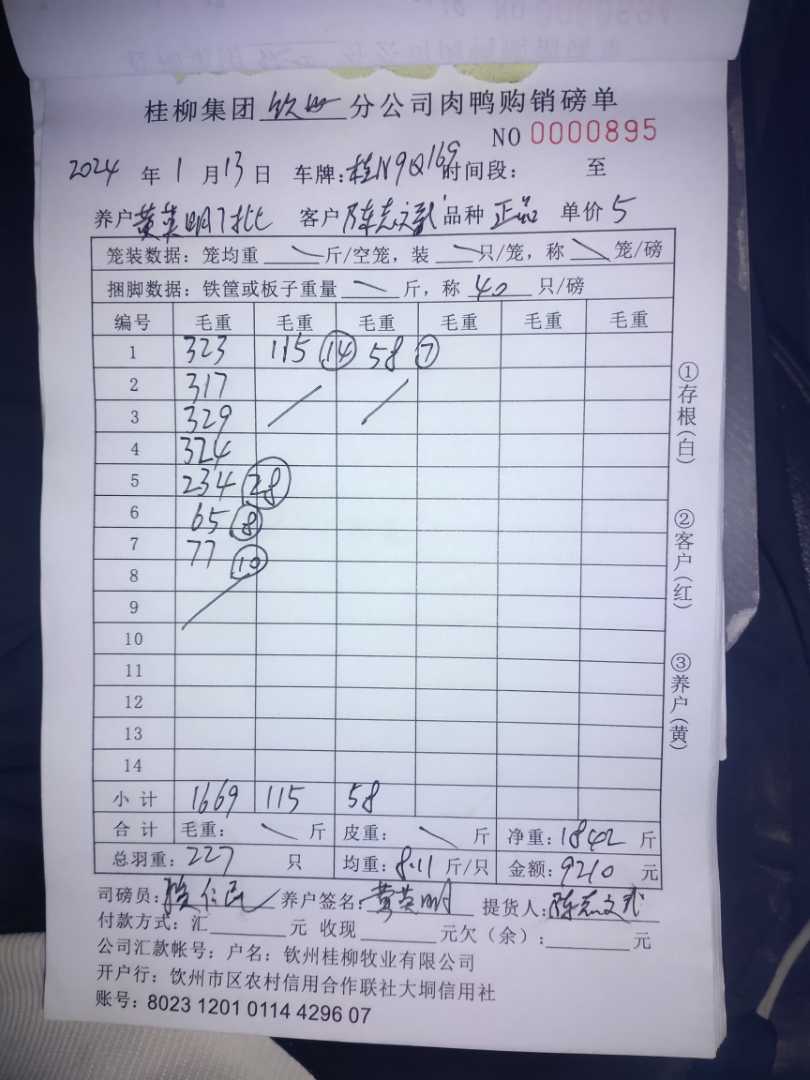 桂柳集团 钦州 分公司肉鸭购销磅单
NO 0000895
2024 年 1 月 13 日 车牌:桂N9Q169 时间段: 至
养户 黄英明7批 客户 陈志文武 品种 正品 单价 5
笼装数据:笼均重 斤/空笼,装 只/笼,称 笼/磅
捆脚数据:铁筐或板子重量 斤,称 40 只/磅
编号 毛重 毛重 毛重 毛重 毛重 毛重
1 323 115 ⑭ 58 ⑦
2 317
3 329
4 324
5 234 ㉘
6 65 ⑧
7 77 ⑩
8
9
10
11
12
13
14
小计 1669 115 58
合计 毛重: 斤 皮重: 斤 净重:1842 斤
总羽重:227 只 均重:8.11 斤/只 金额:9210 元
司磅员: 养户签名:黄英明 提货人:陈志文武
付款方式:汇 元 收现 元欠(余): 元
公司汇款帐号:户名:钦州桂柳牧业有限公司
开户行:钦州市区农村信用合作联社大垌信用社
账号:8023 1201 0114 4296 07
①存根(白)
②客户(红)
③养户(黄)